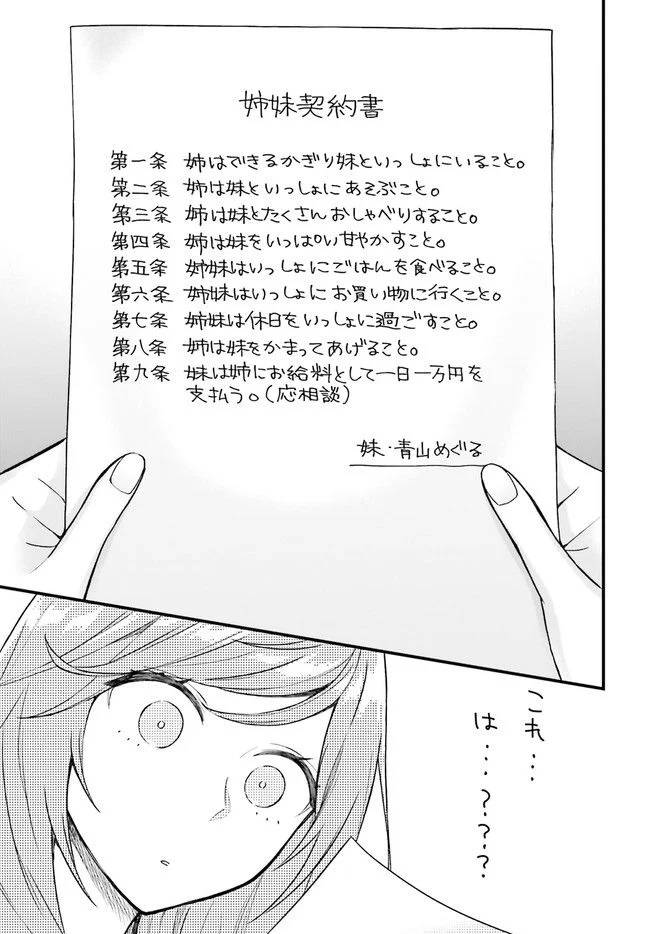 姉妹契約書
第一条 姉はできるかぎり妹といっしょにいること。
第二条 姉は妹といっしょにあそぶこと。
第三条 姉は妹とたくさんおしゃべりすること。
第四条 姉は妹をいっぱい甘やかすこと。
第五条 姉妹はいっしょにごはんを食べること。
第六条 姉妹はいっしょにお買い物に行くこと。
第七条 姉妹は休日をいっしょに過ごすこと。
第八条 姉は妹をかまってあげること。
第九条 妹は姉にお給料として一日一万円を
支払う。(応相談)
妹・青山めぐる
これ…
は…???